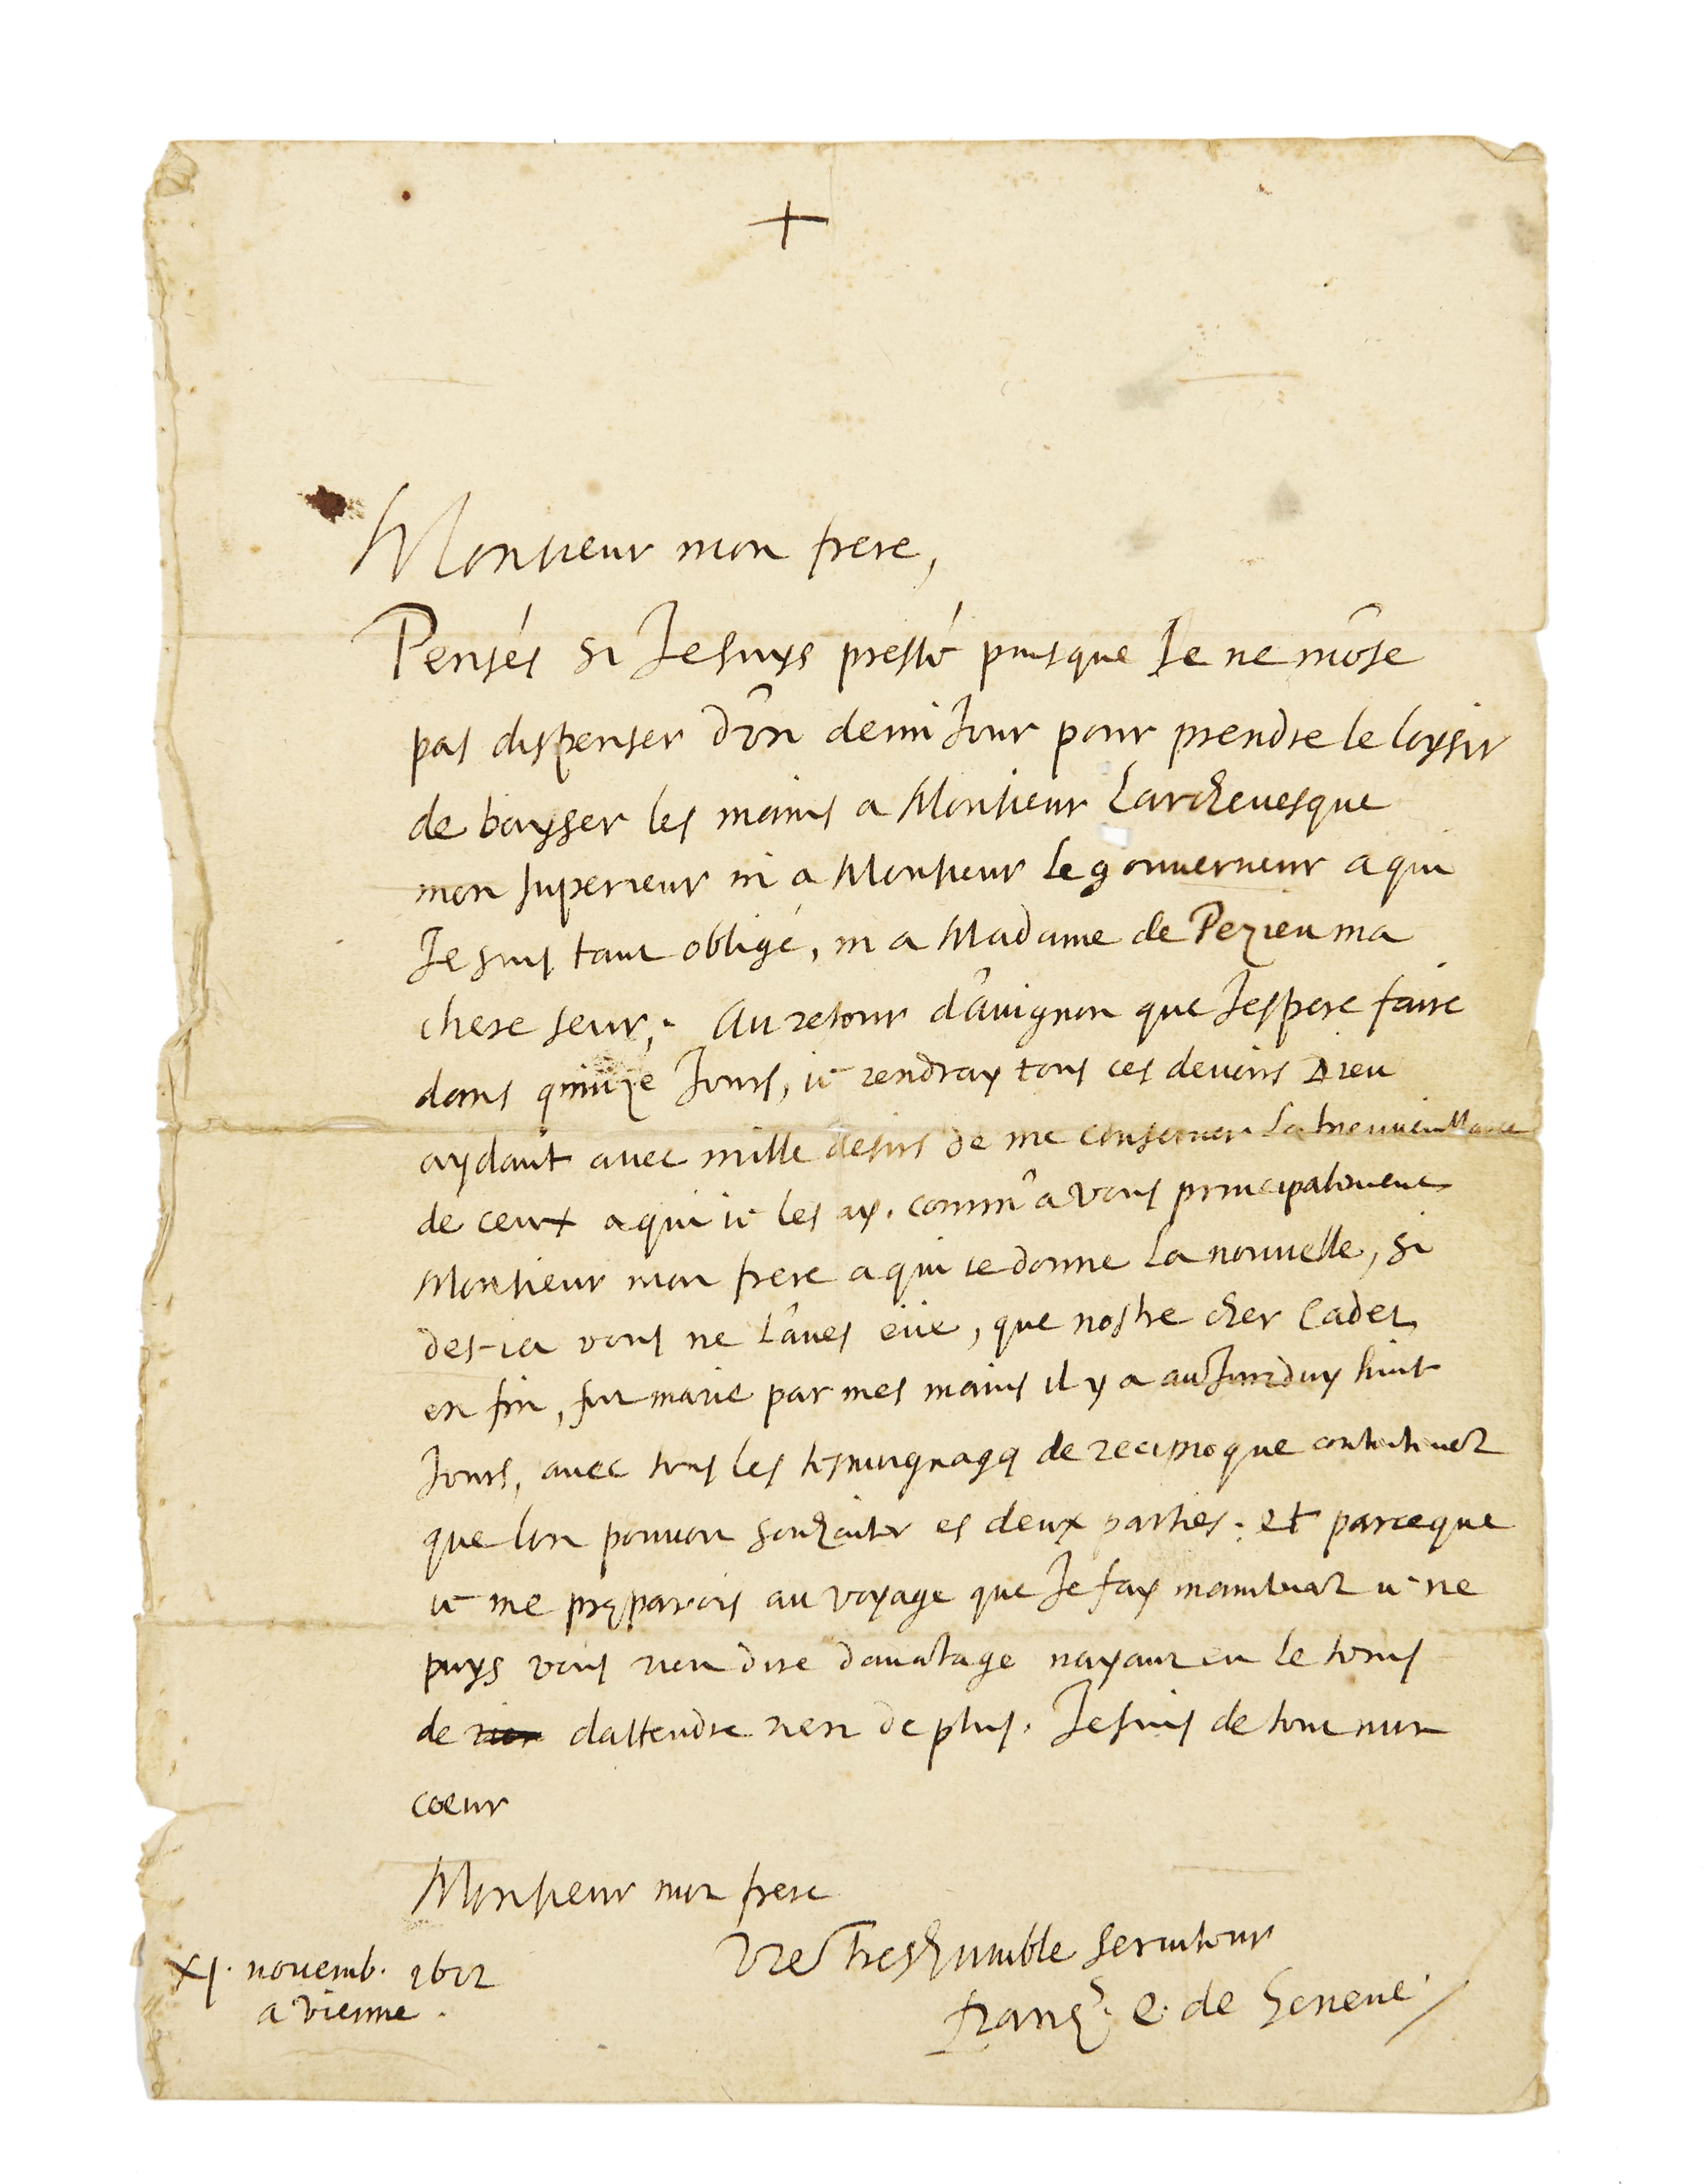 +
Monsieur mon frere,
Pensés si Je suys pressé puisque Je ne m'ose
pas dispenser d'vn demi Jour pour prendre le loysir
de bayser les mains a Monsieur Larcheuesque
mon superieur ni a Monsieur le gouuerneur a qui
Je suis tant obligé, ni a Madame de Pezieu ma
chere seur; Au retour d'Auignon que J'espere faire
dans quinze Jours, ie rendray tous ces deuoirs Dieu
aydant auec mille desirs de me conseruer la bienueuillance
de ceux a qui ie les ay. comm'a vous principalement
Monsieur mon frere a qui ie donne la nouuelle, si
des-ia vous ne l'aues eüe, que nostre cher Cadet
en fin, fut marié par mes mains il y a aujourdhuy huit
Jours, auec tous les tesmoignages de reciproque contentement
que lon pouuoit souhaiter es deux parties; et parceque
ie me præparois au voyage que Je fay maintenant ie ne
puys vous rien dire dauantage nayant eu le tems
de rien dattendre rien de plus. Je suis de tout mon
coeur
Monsieur mon frere
Vre tres humble seruiteur
Françs. e. de Geneue
XI. nouemb. 1622
a Vienne.